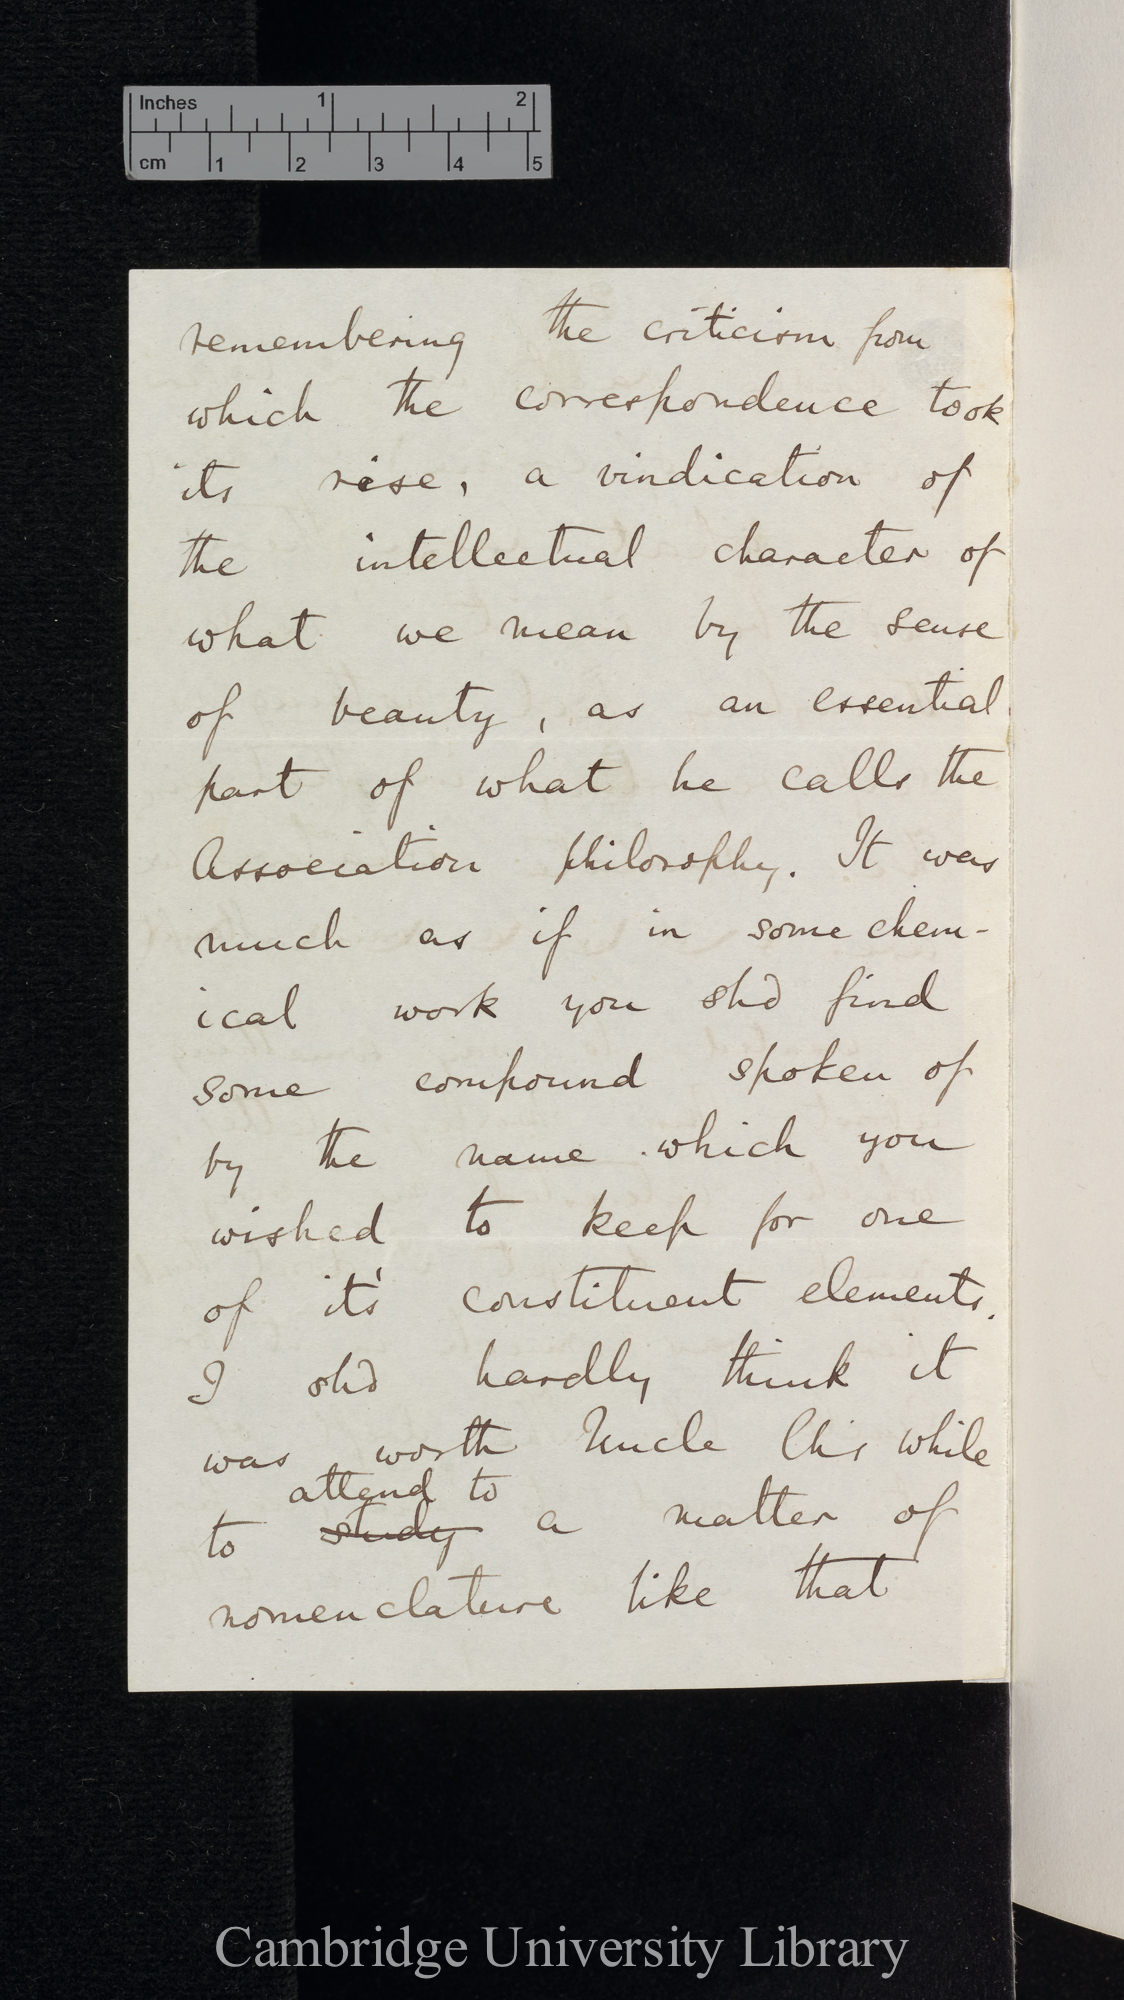 Inches 1 2
cm 1 2 3 4 5
remembering the criticism from
which the correspondence took
its rise, a vindication of
the intellectual character of
what we mean by the sense
of beauty, as an essential
part of what he calls the
Association philosophy. It was
much as if in some chem-
ical work you shd find
some compound spoken of
by the name which you
wished to keep for one
of it's constituent elements.
I shd hardly think it
was worth Uncle Chs while
attend to
to study a matter of
nomenclature like that
Cambridge University Library